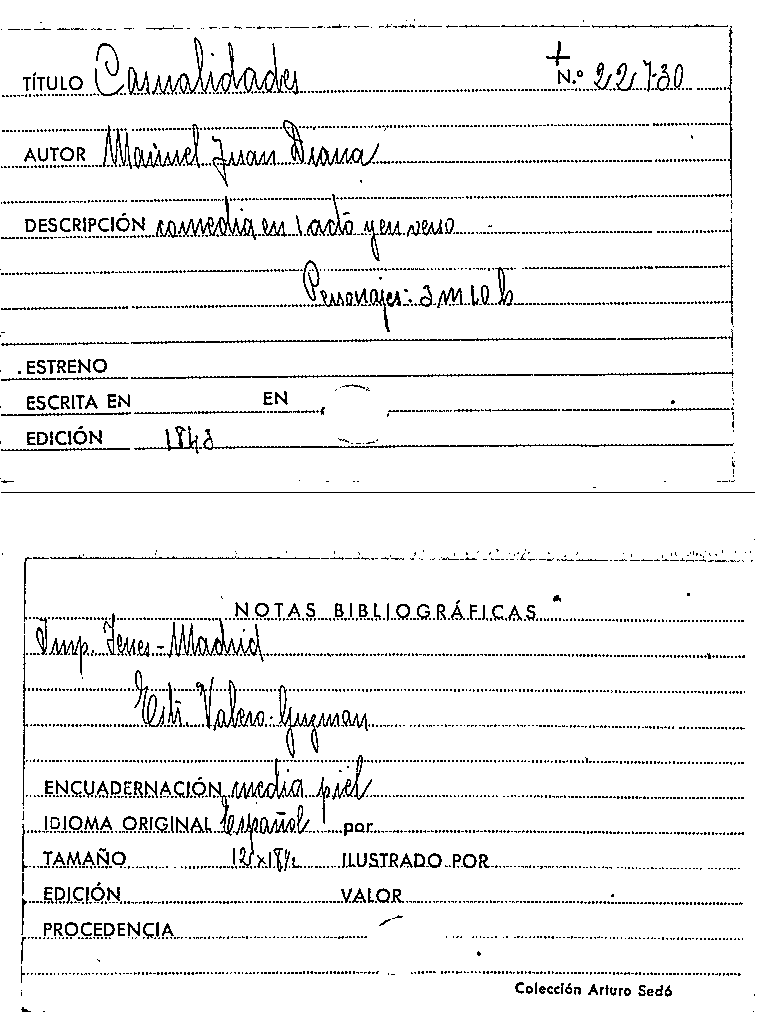 TÍTULO Casualidades N.º 22730
AUTOR Manuel Juan Diana
DESCRIPCIÓN comedia en 1 acto y en verso
Personajes: 3 m 10 h
ESTRENO
ESCRITA EN EN
EDICIÓN 1843
NOTAS BIBLIOGRÁFICAS
Imp. Yenes - Madrid
Estr. Valero-Guzman
ENCUADERNACIÓN media piel
IDIOMA ORIGINAL Español por
TAMAÑO ILUSTRADO POR
EDICIÓN VALOR
PROCEDENCIA
Colección Arturo Sedó